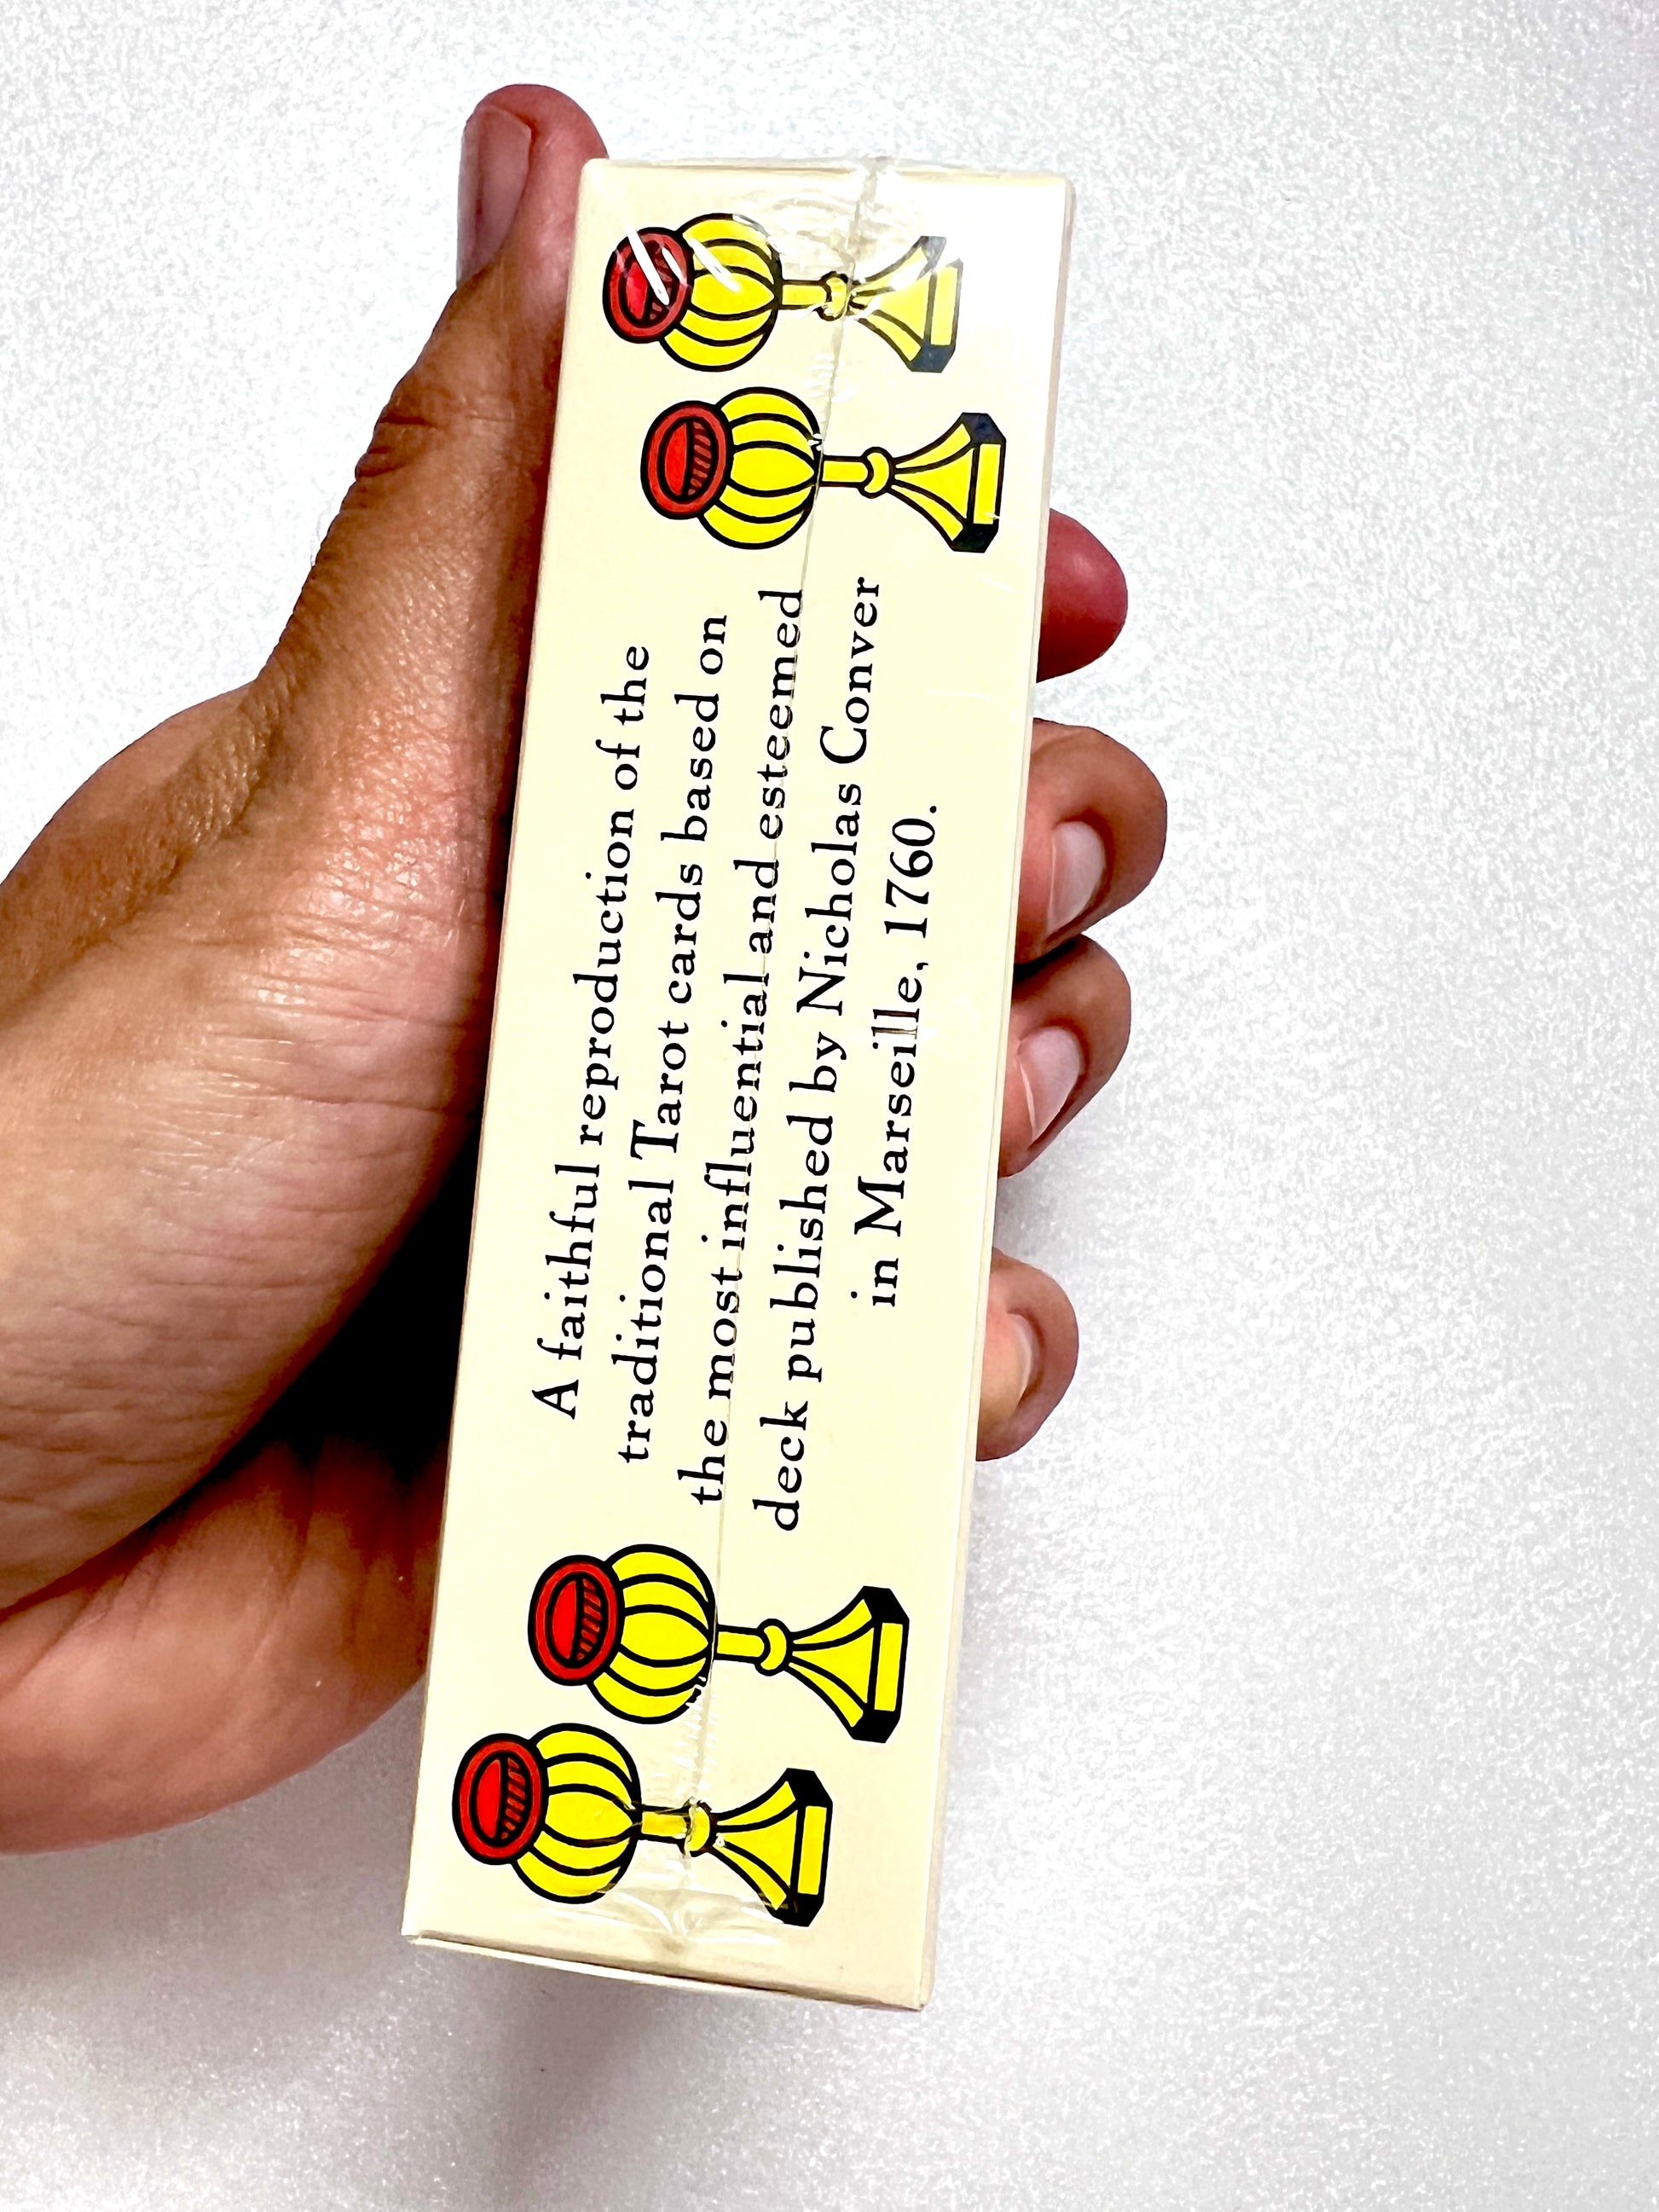 A faithful reproduction of the
traditional Tarot cards based on
the most influential and esteemed
deck published by Nicholas Conver
in Marseille, 1760.